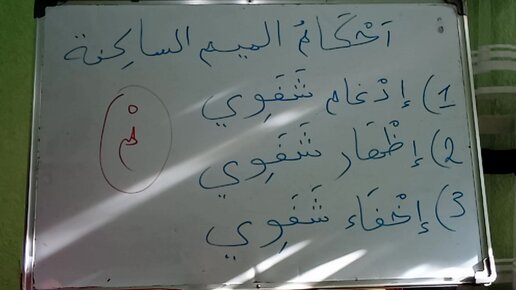 أَحْكَامُ الميم الساكِنة
1) إدْغام شَفَوِي
2) إظْهَار شَفَوِي
3) إخْفَاء شَفَوِي
مْ